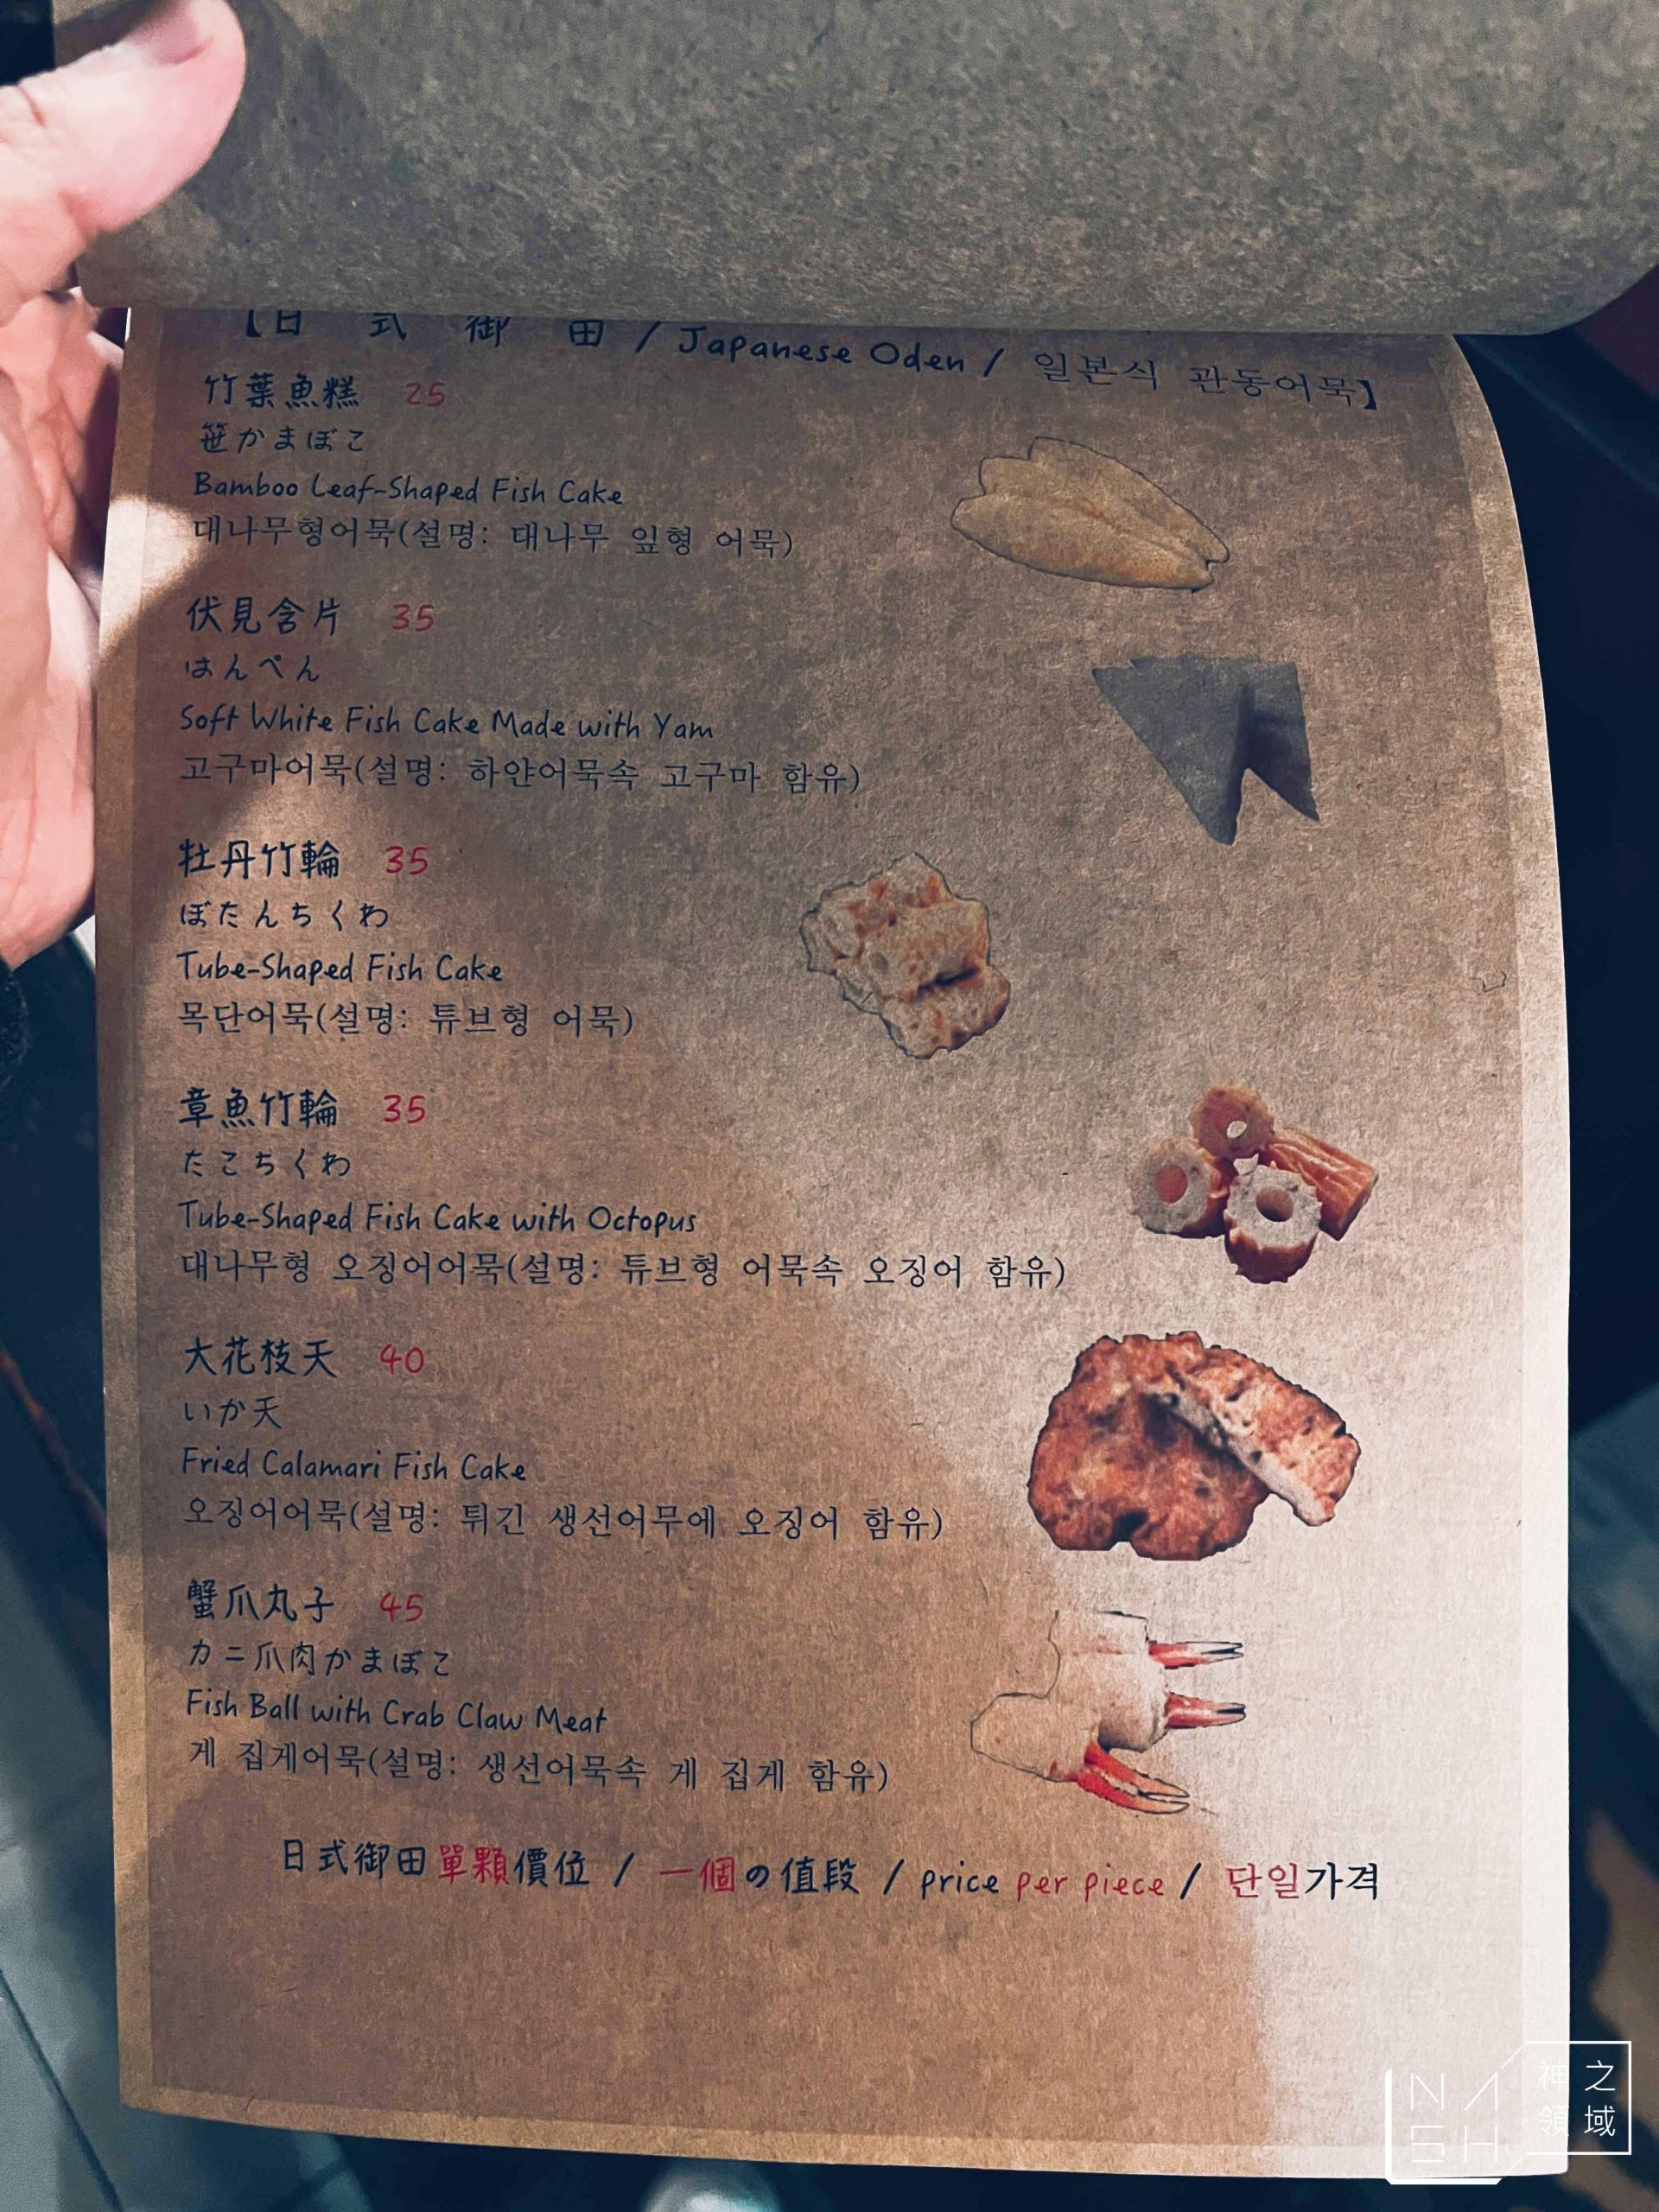 【日 式 御 田 / Japanese Oden / 일본식 관동어묵】
竹葉魚糕 25
笹かまぼこ
Bamboo Leaf-Shaped Fish Cake
대나무형어묵(설명: 대나무 잎형 어묵)
伏見含片 35
はんぺん
Soft White Fish Cake Made with Yam
고구마어묵(설명: 하얀어묵속 고구마 함유)
牡丹竹輪 35
ぼたんちくわ
Tube-Shaped Fish Cake
목단어묵(설명: 튜브형 어묵)
章魚竹輪 35
たこちくわ
Tube-Shaped Fish Cake with Octopus
대나무형 오징어어묵(설명: 튜브형 어묵속 오징어 함유)
大花枝天 40
いか天
Fried Calamari Fish Cake
오징어어묵(설명: 튀긴 생선어무에 오징어 함유)
蟹爪丸子 45
カニ爪肉かまぼこ
Fish Ball with Crab Claw Meat
게 집게어묵(설명: 생선어묵속 게 집게 함유)
日式御田單顆價位 / 一個の值段 / price per piece / 단일가격
NASH
神之領域